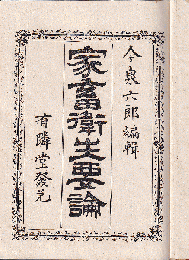 今泉六郎編輯
家畜衛生要論
有隣堂發兌